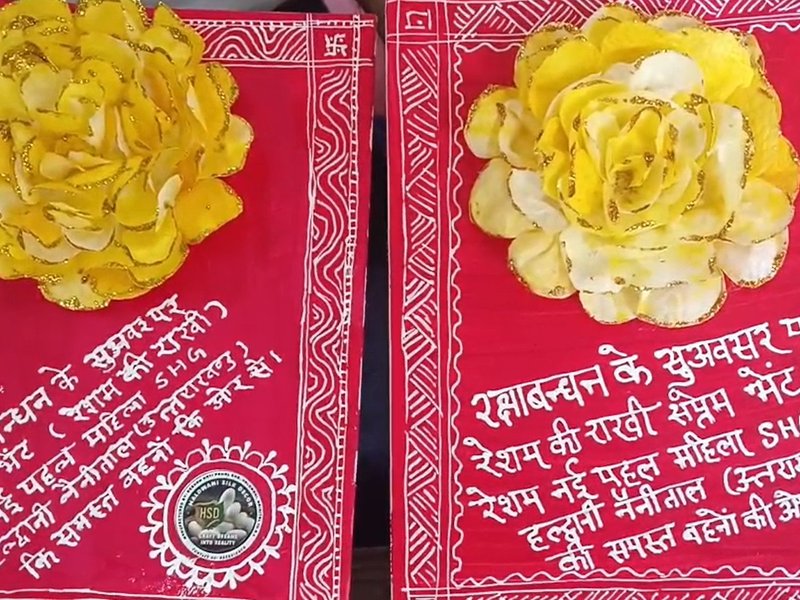 न्धन के सुअवसर पर
भेंट (रेशम की राखी)
नई पहल महिला SHG
नैनीताल (उत्तराखण्ड)
कि समस्त बहनों कि ओर से।
HALDWANI SILK DECOR
HSD
CRAFT DREAMS
INTO REALITY
रक्षाबन्धन के सुअवसर प
रेशम की राखी सप्रेम भेंट
रेशम नई पहल महिला SHG
हल्द्वानी नैनीताल (उत्तरा
की समस्त बहनों की ओ